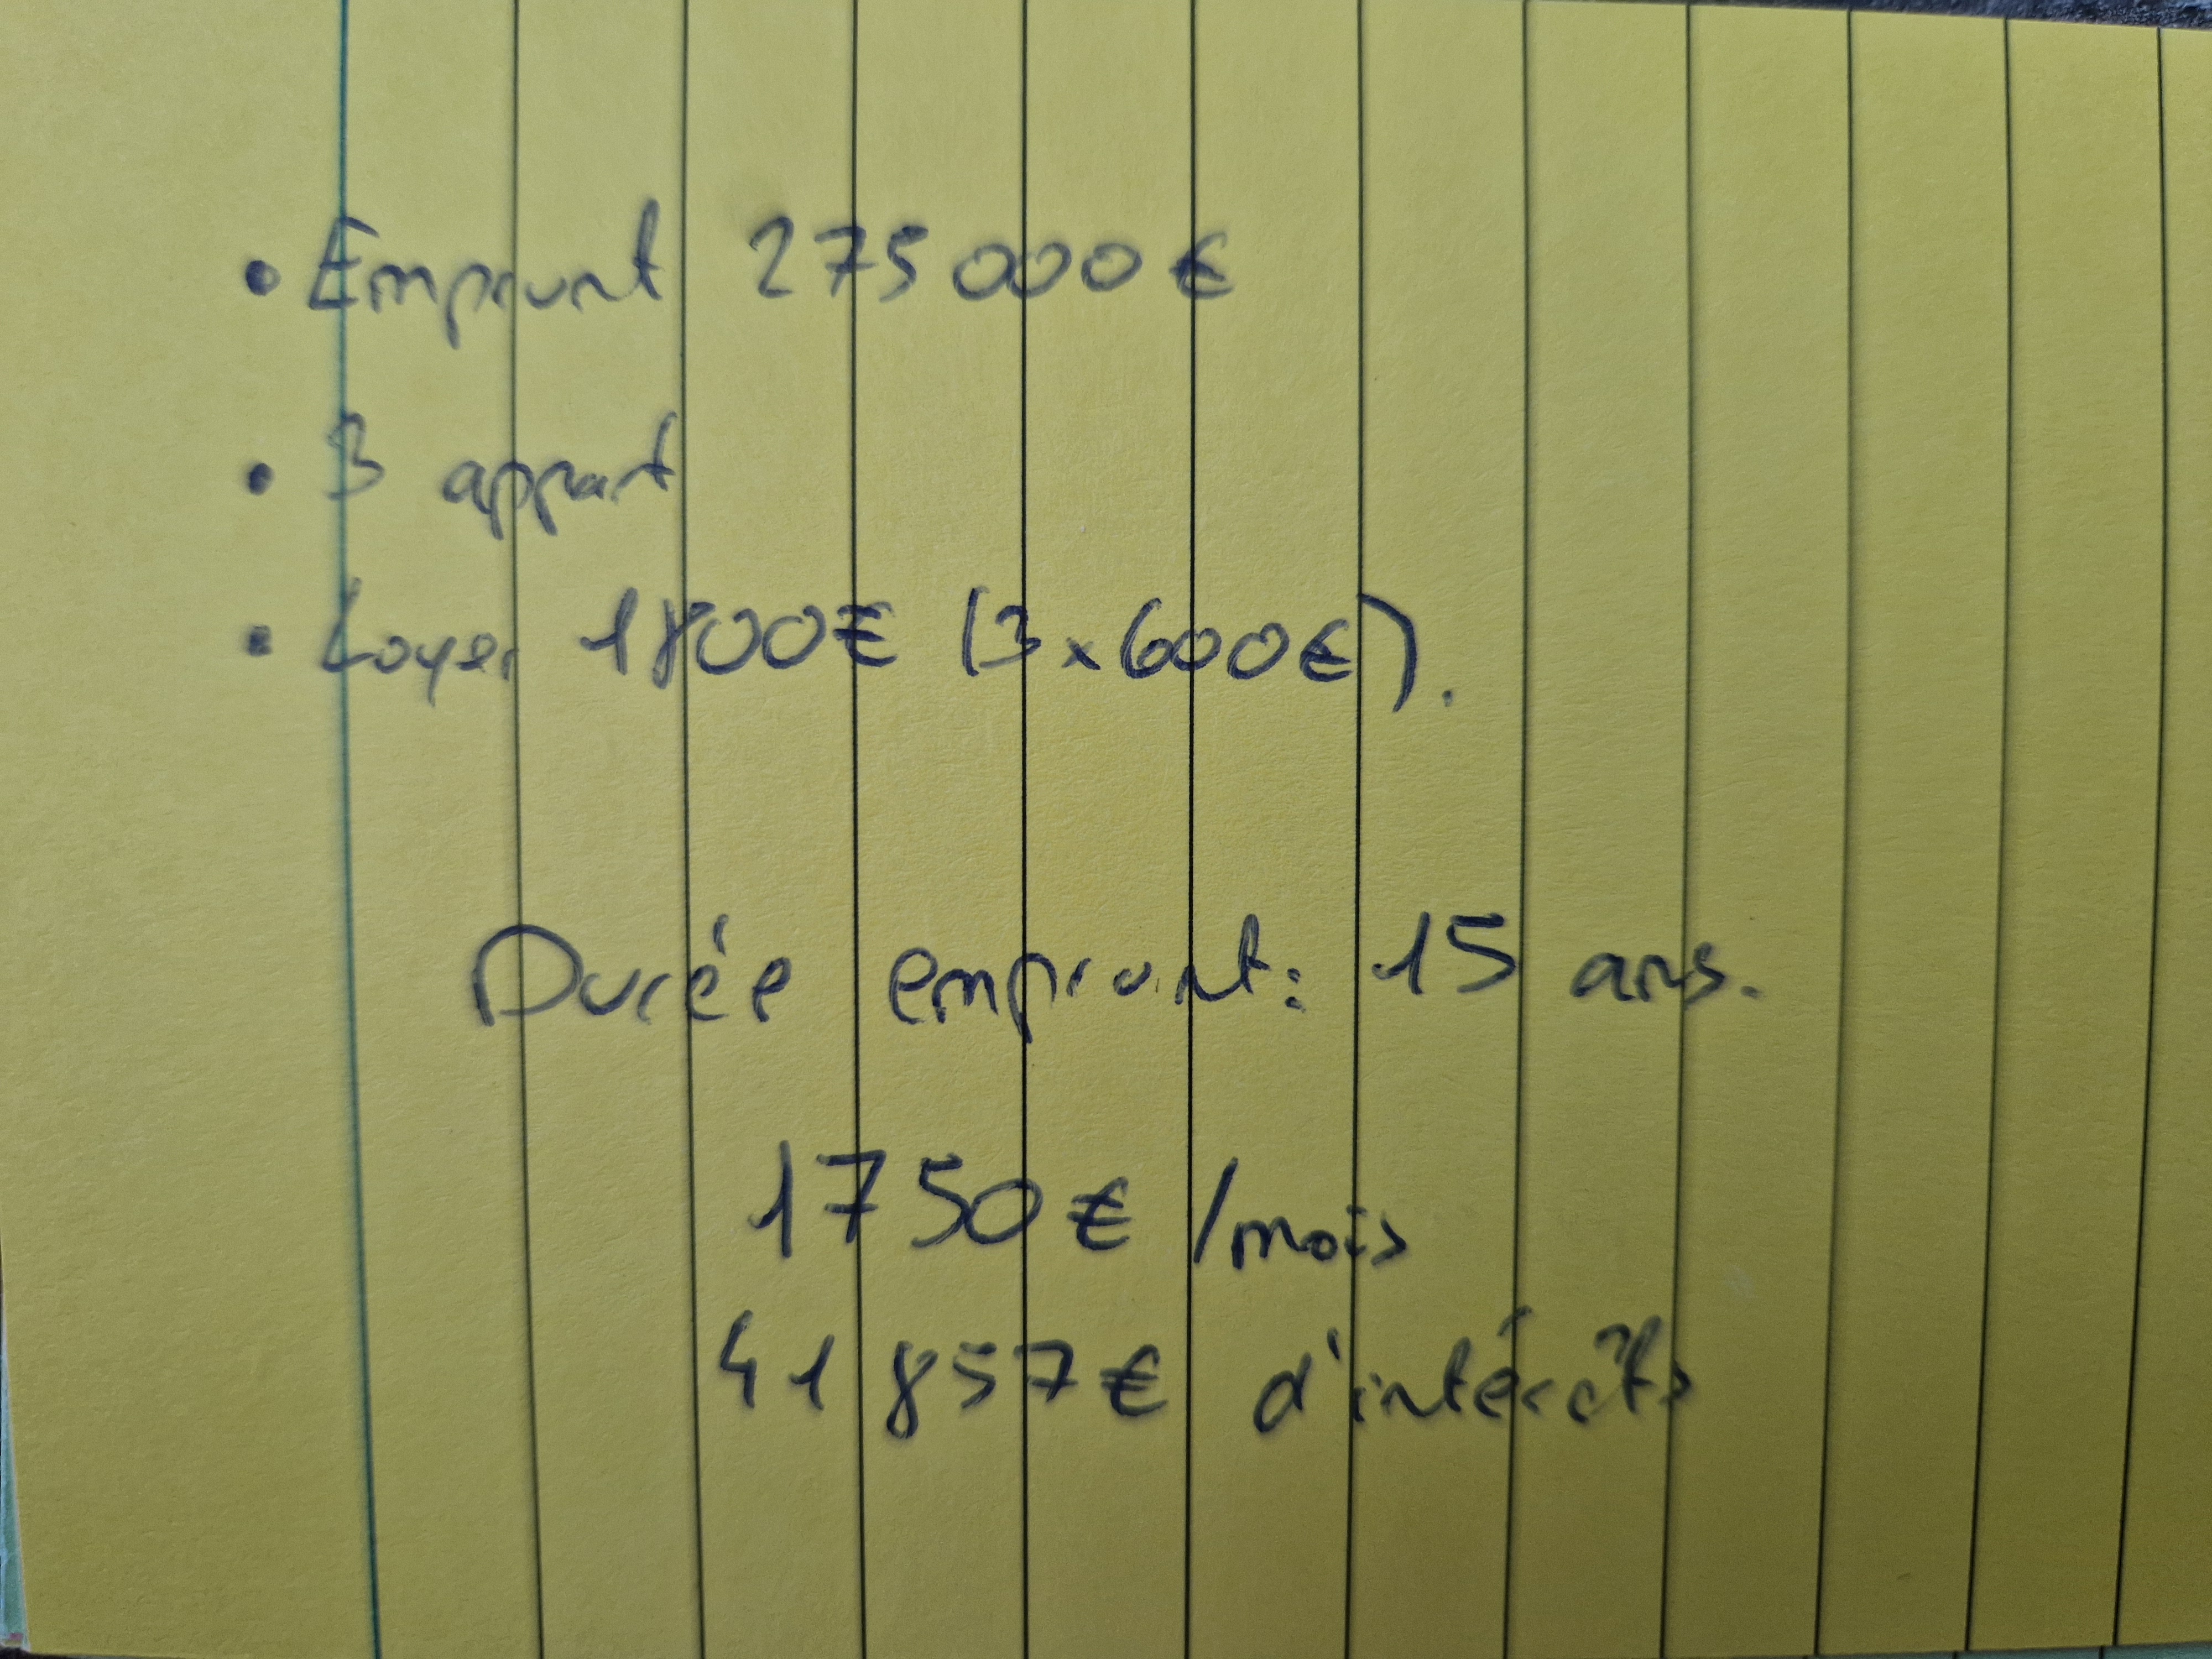 • Emprunt 275 000 €
• 3 appart
• Loyer 1800€ (3x600€).
Durée emprunt: 15 ans.
1750 € /mois
41 857 € d'intérêts